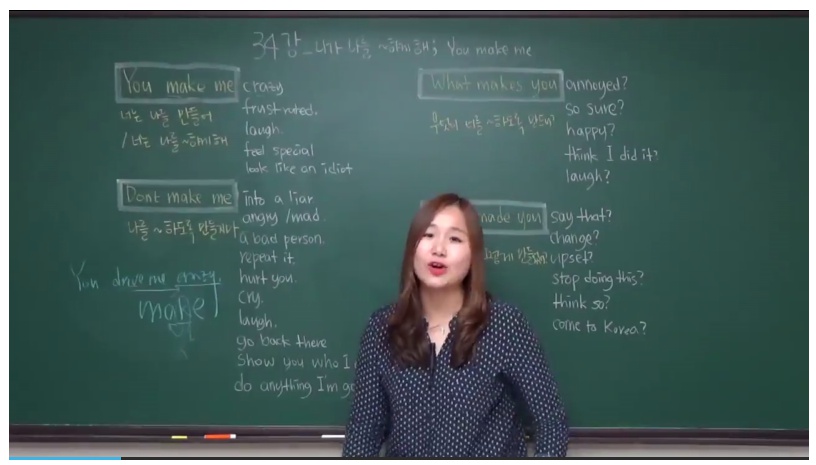 34강 _ 너가 나를 ~하게 해; You make me
You make me
너는 나를 만들어
/ 너는 나를 ~하게 해
crazy
frustrated.
laugh.
feel special
look like an idiot
Dont make me
나를 ~하도록 만들지마
into a liar
angry /mad.
a bad person.
repeat it.
hurt you.
cry.
laugh.
go back there
show you who I
do anything I'm
You drive me crazy.
make
What makes you
무엇이 너를 ~하도록 만들어?
annoyed?
so sure?
happy?
think I did it?
laugh?
made you
say that?
change?
upset?
stop doing this?
think so?
come to Korea?